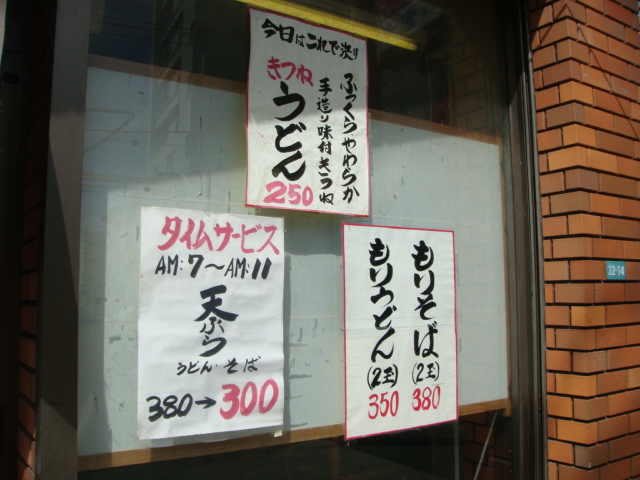 今日はこれで決り
ふっくらやわらか
手造り味付きつね
きつね
うどん
250
タイムサービス
AM:7〜AM:11
天ぷら
うどん・そば
380→300
もりそば
(2玉)
380
もりうどん
(2玉)
350
22-14